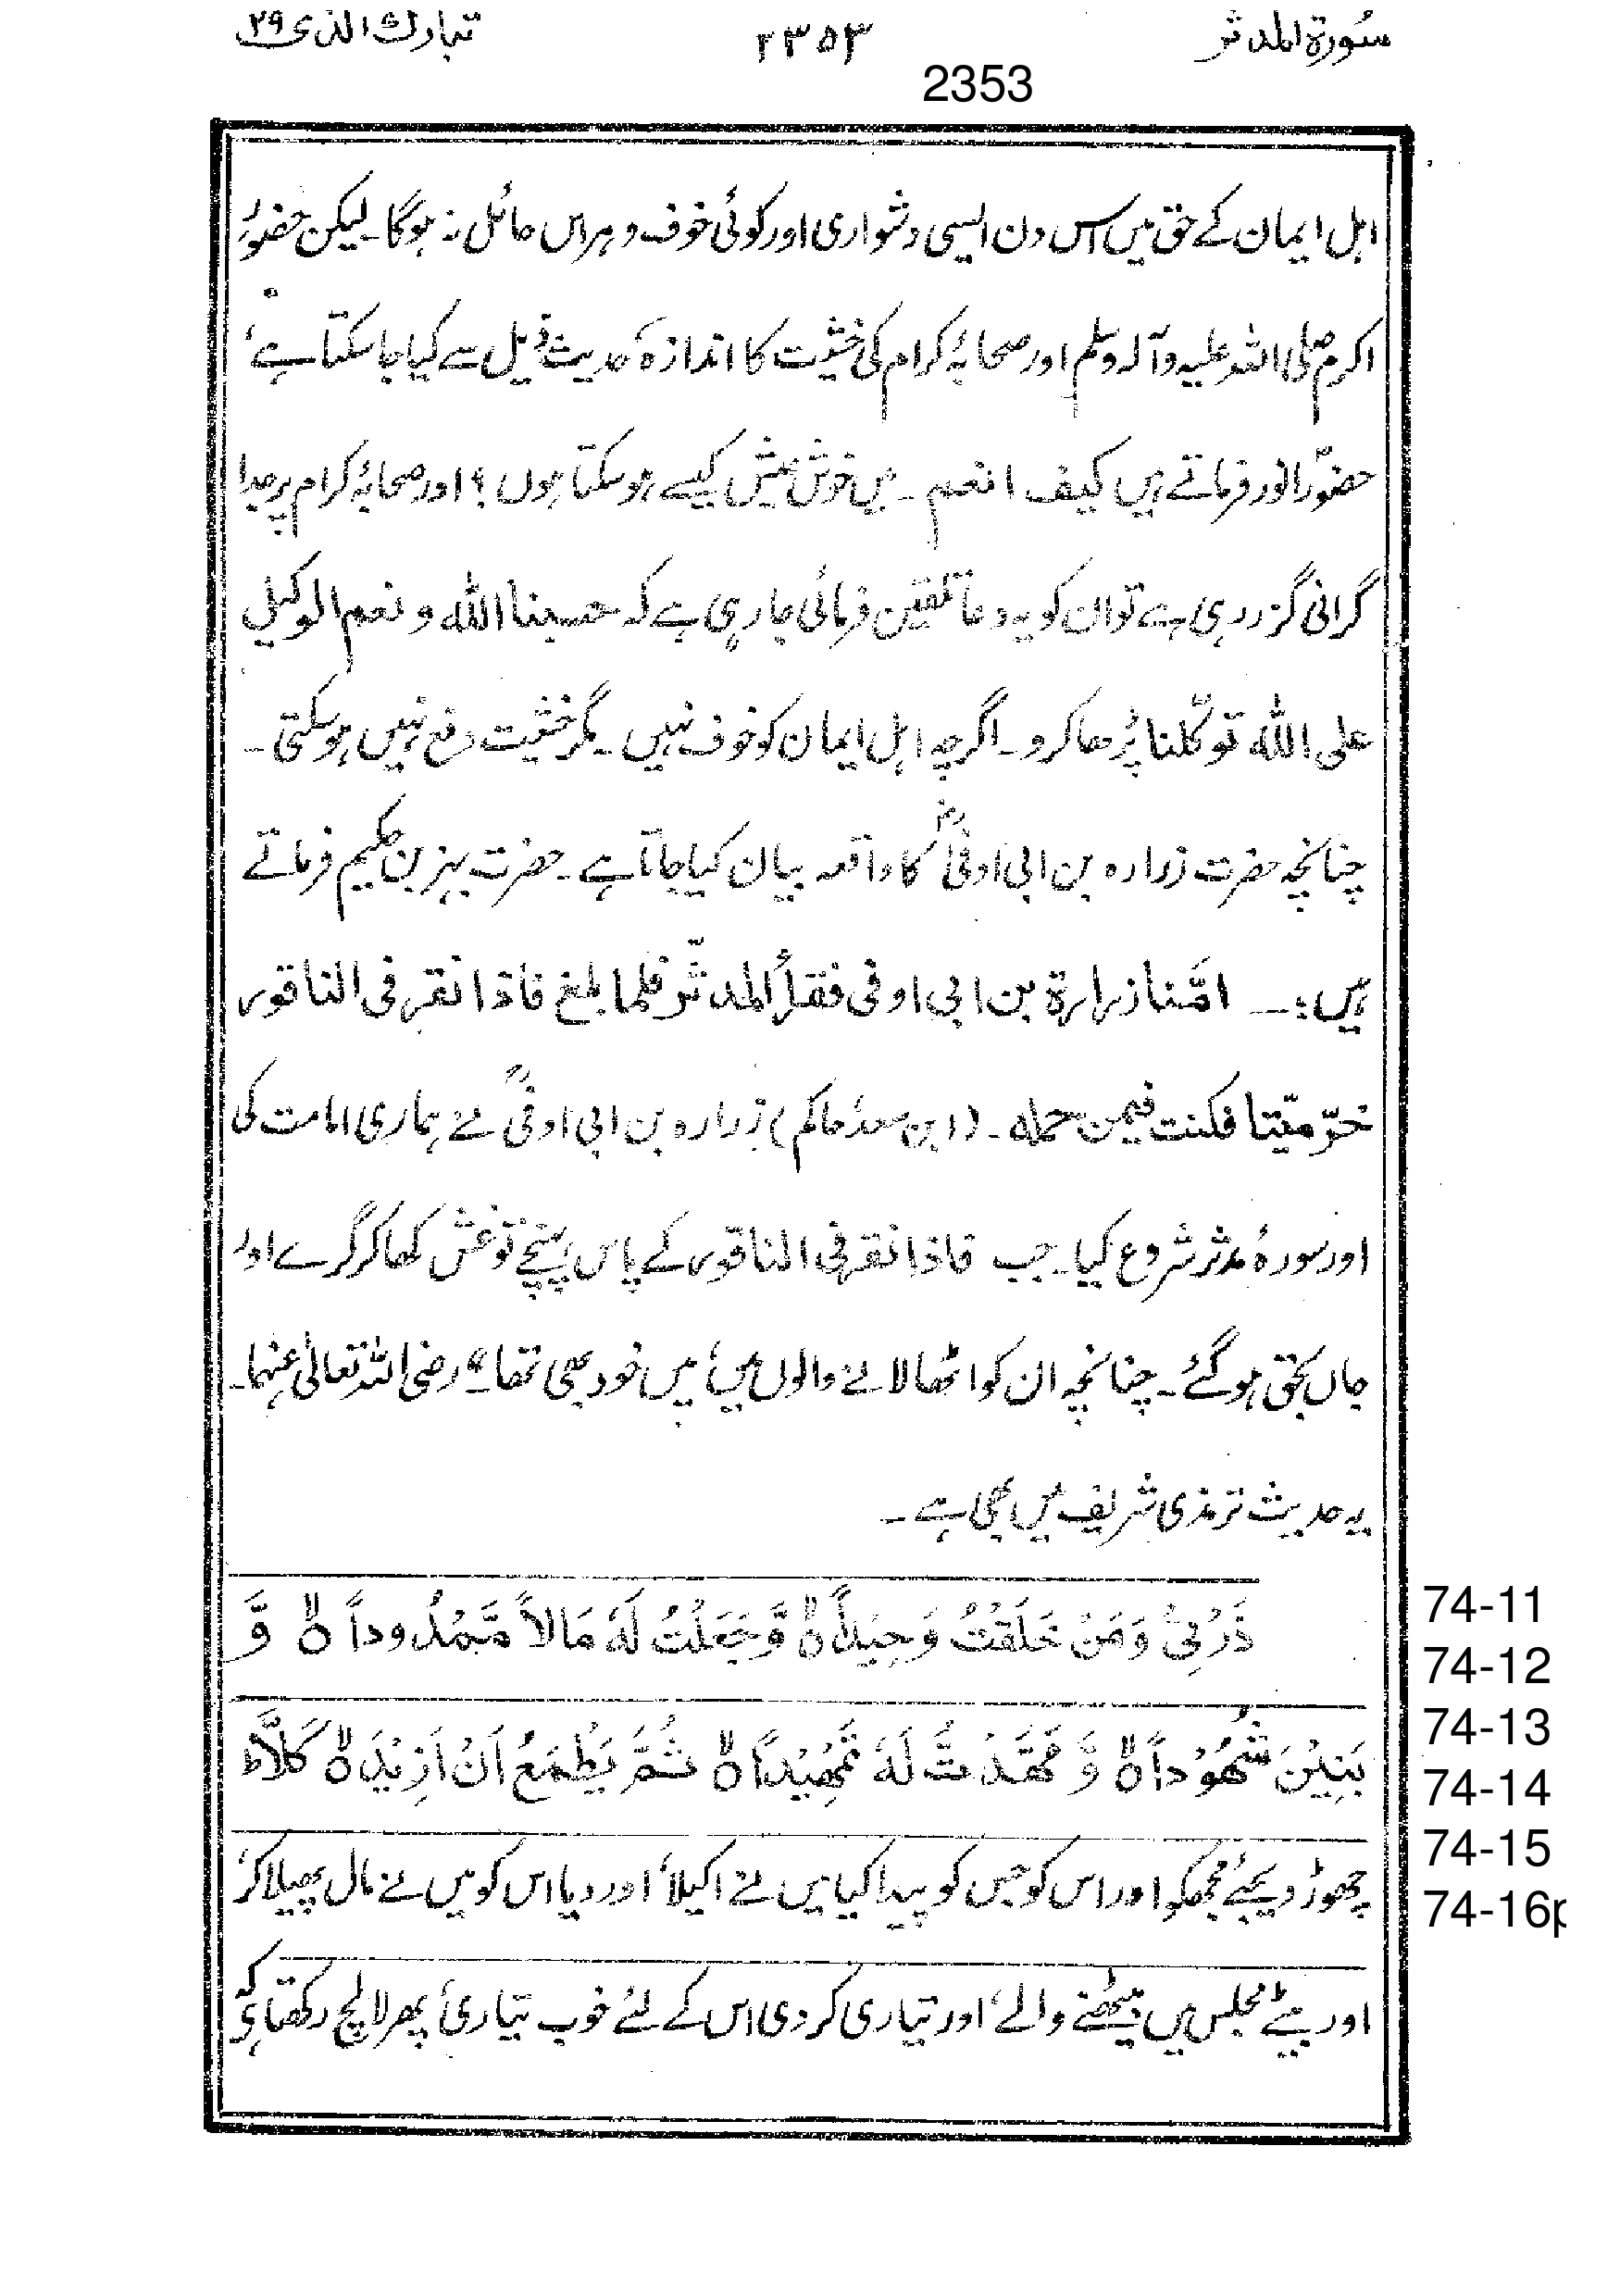 سُورۃ المدثر ۲۳۵۳ تبارك الذی ۲۹
2353
اہل ایمان کے حق میں اس دن ایسی دشواری اور کوئی خوف و ہراس حائل نہ ہوگا۔ لیکن حضورؐ
اکرم صلی اللہ علیہ وآلہ وسلم اور صحابۂ کرام کی خشیت کا اندازہ، حدیث ذیل سے کیا جا سکتا ہے،
حضورؐ انور فرماتے ہیں کیف انعم۔ میں خوش عیش کیسے ہو سکتا ہوں؟ اور صحابۂ کرام پر جدا
گرانی گزر رہی ہے تو ان کو یہ دعا تلقین فرمائی جا رہی ہے کہ حسبنا اللہ و نعم الوکیل
علی اللہ توکّلنا پڑھا کرو۔ اگرچہ اہل ایمان کو خوف نہیں۔ مگر خشیت رفع نہیں ہو سکتی۔
چنانچہ حضرت زرارہ بن ابی اوفیٰؓ کا واقعہ بیان کیا جاتا ہے۔ حضرت بہز بن حکیم فرماتے
ہیں:۔ امّنا زرارۃ بن ابی اوفی فقرأ المدثّر فلما بلغ فاذا نقر فی الناقور
خرّ میّتا فکنت فیمن حملہ۔ (ابن سعد، حاکم) زرارہ بن ابی اوفیؓ نے ہماری امامت کی
اور سورۂ مدثر شروع کیا۔ جب فاذا نقر فی الناقور کے پاس پہنچے تو غش کھا کر گرے اور
جاں بحق ہو گئے۔ چنانچہ ان کو اٹھا لانے والوں میں، میں خود بھی تھا۔" رضی اللہ تعالیٰ عنہما۔
یہ حدیث ترمذی شریف میں بھی ہے۔
ذَرْنِیْ وَمَنْ خَلَقْتُ وَحِیْداً ۙ وَّجَعَلْتُ لَهٗ مَالاً مَّمْدُوداً ۙ وَّ
بَنِیْنَ شُهُوْداً ۙ وَّ مَهَّدْتُّ لَهٗ تَمْهِیْداً ۙ ثُمَّ یَطْمَعُ اَنْ اَزِیْدَ ۙ کَلَّا ؕ
چھوڑ دیجئے مجھکو اور اس کو جس کو پیدا کیا میں نے اکیلا، اور دیا اس کو میں نے مال پھیلا کر،
اور بیٹے مجلس میں بیٹھنے والے، اور تیاری کر دی اس کے لئے خوب تیاری، پھر لالچ رکھتا ہے کہ
74-11
74-12
74-13
74-14
74-15
74-16p